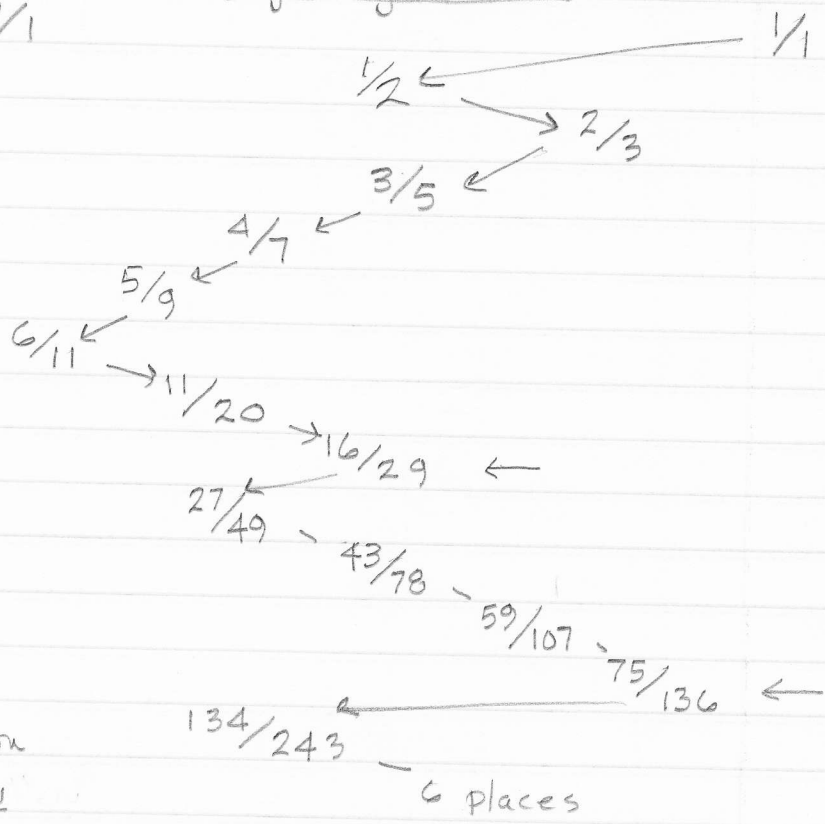 1/1
1/2
2/3
3/5
4/7
5/9
6/11
11/20
16/29
27/49
43/78
59/107
75/136
134/243
6 places